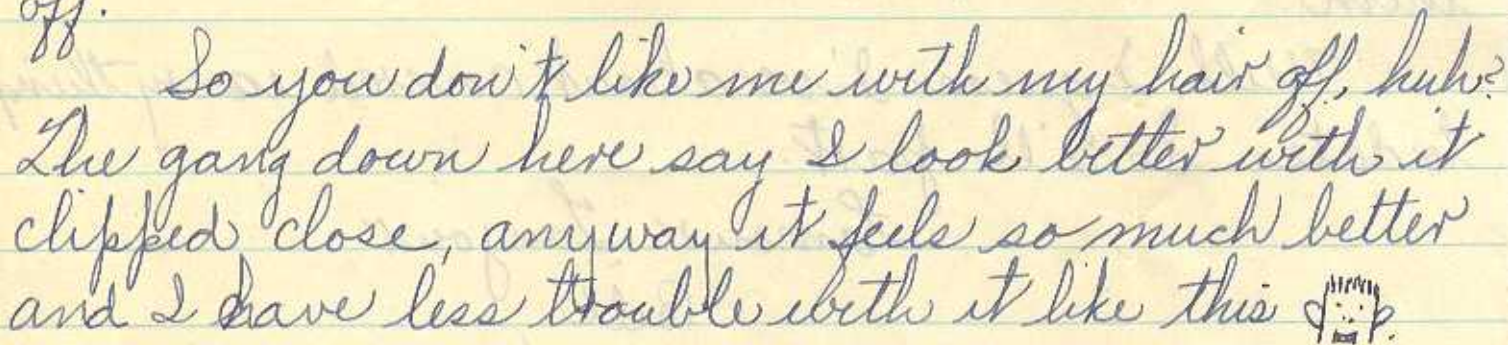 off.
So you don't like me with my hair off, huh?
The gang down here say I look better with it
clipped close, anyway it feels so much better
and I have less trouble with it like this